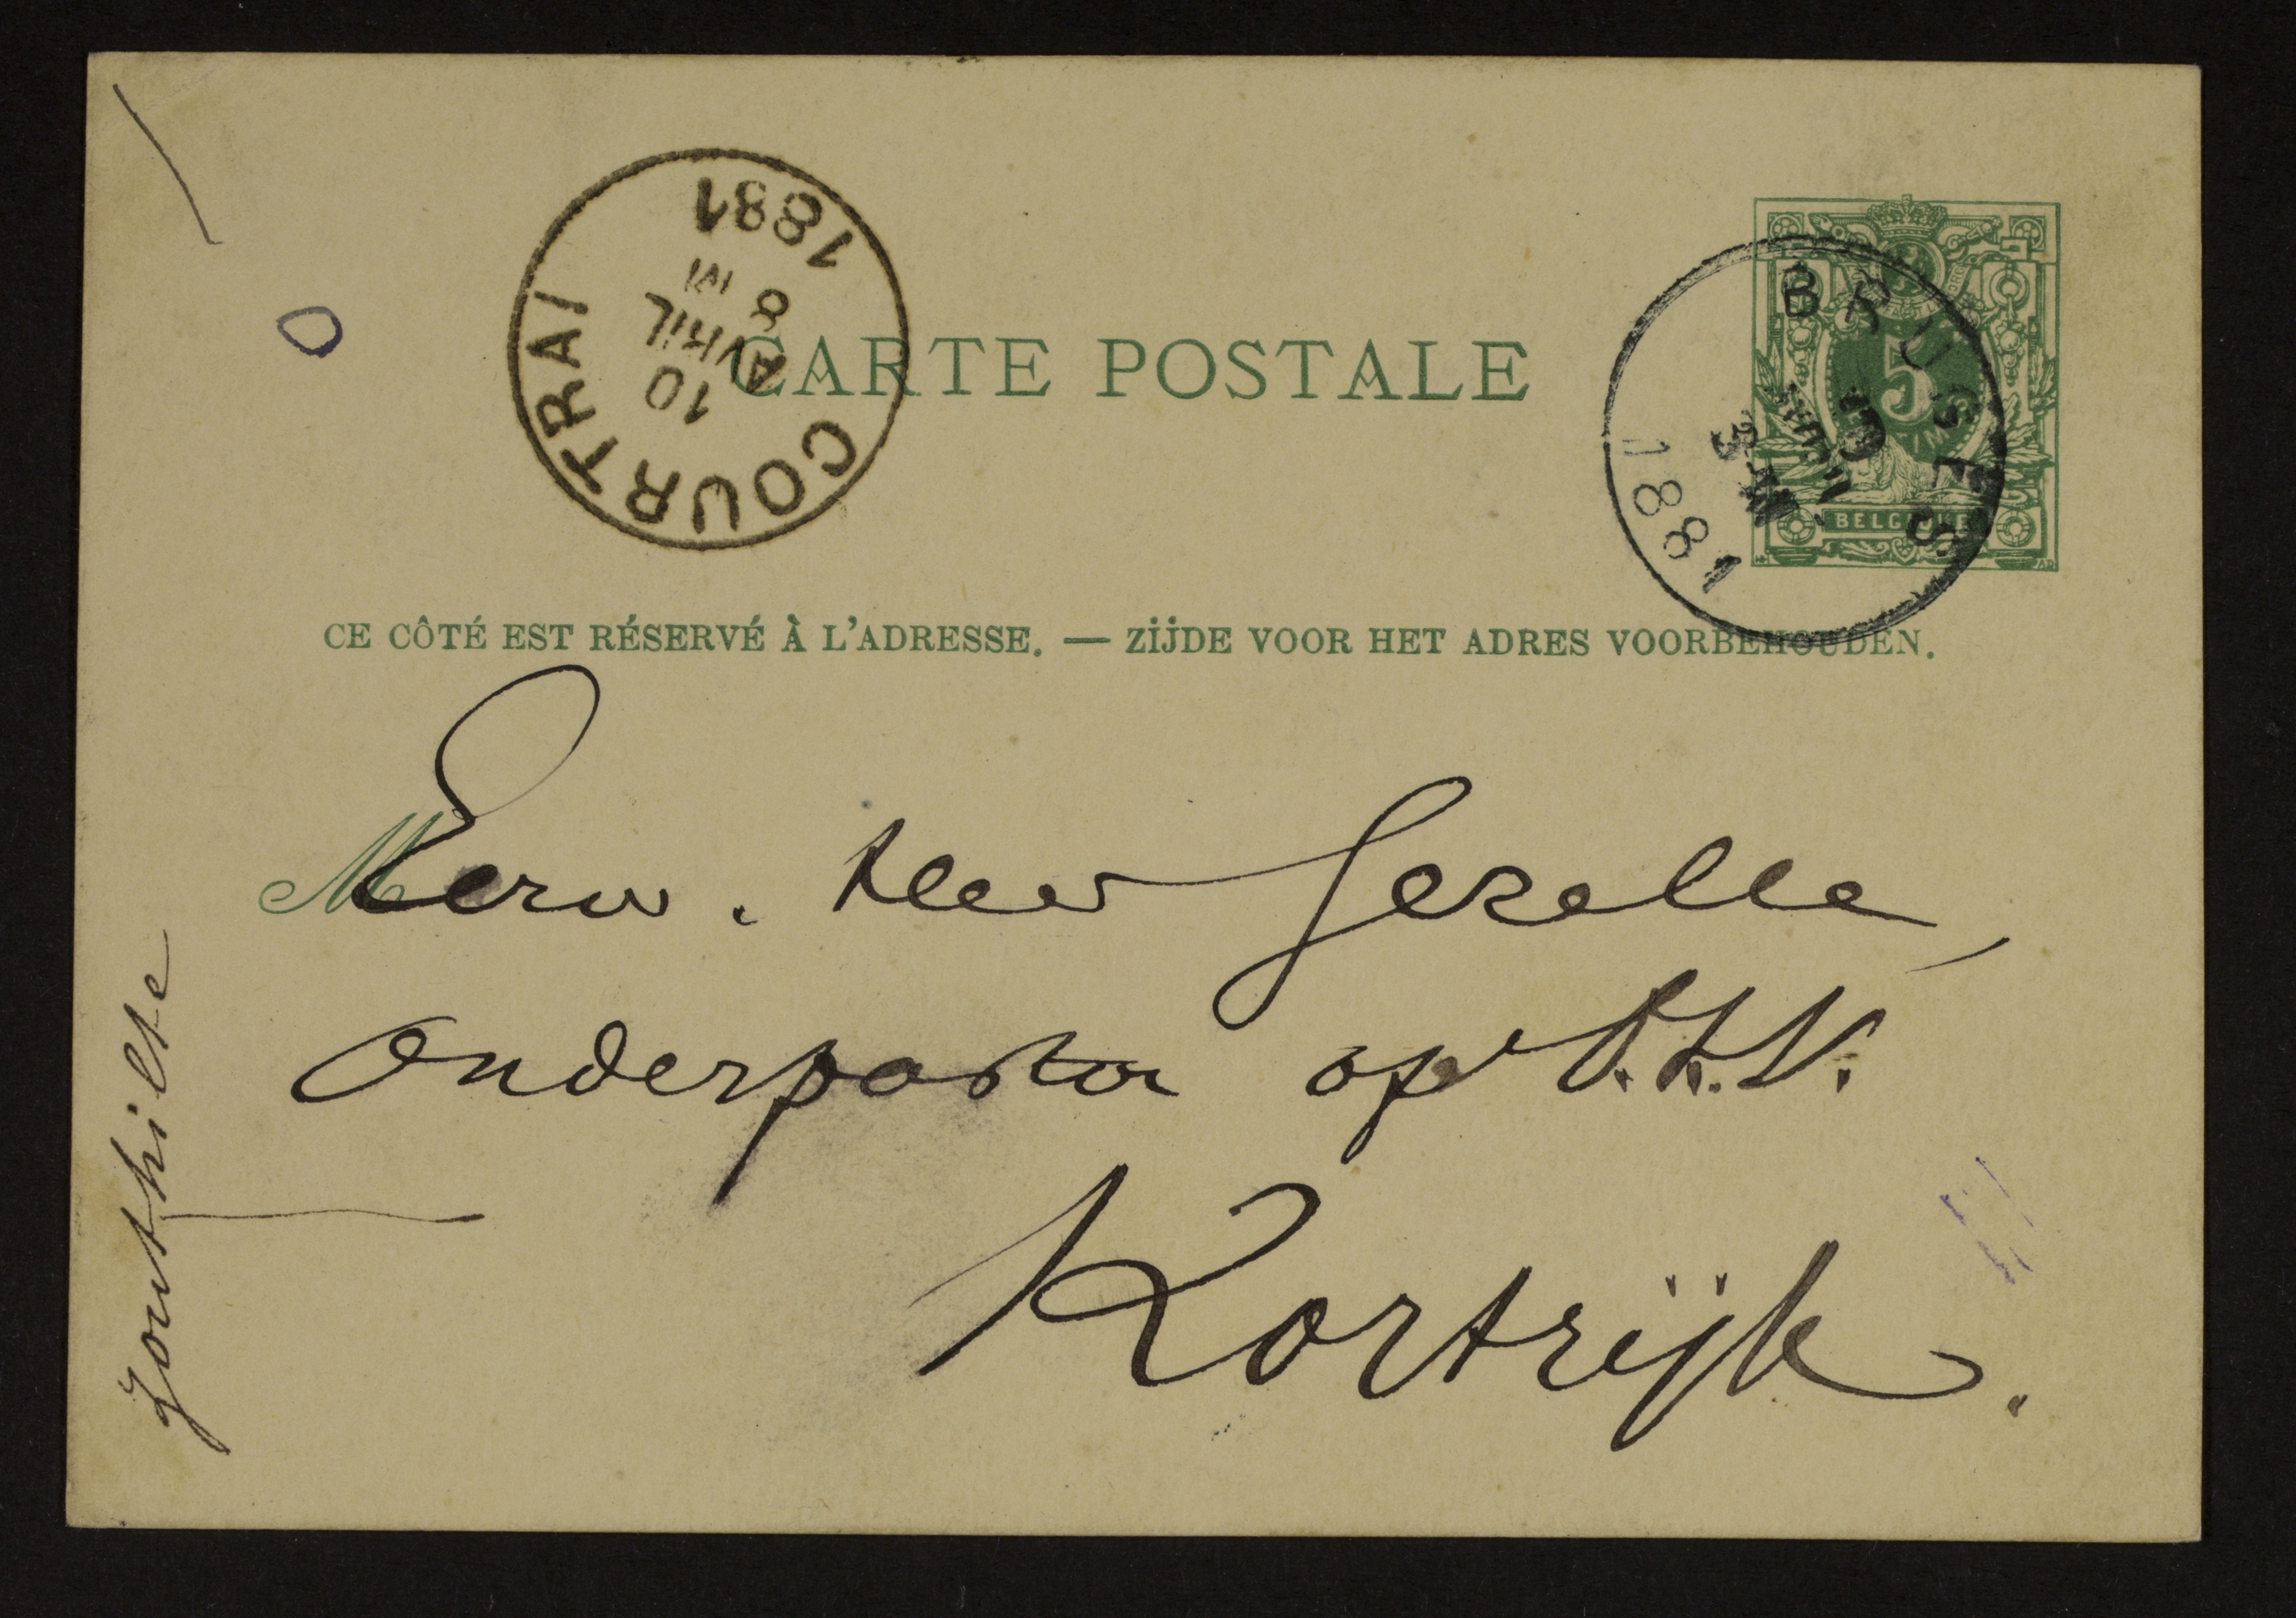 COURTRAI
10
AVRIL
8 M
1881
CARTE POSTALE
BRUGES
1881
5
BELGIQUE
CE CÔTÉ EST RÉSERVÉ À L'ADRESSE. — ZIJDE VOOR HET ADRES VOORBEHOUDEN.
M
Eerw. Heer Gezelle,
Onderpastor op O.L.V.
Kortrijk.